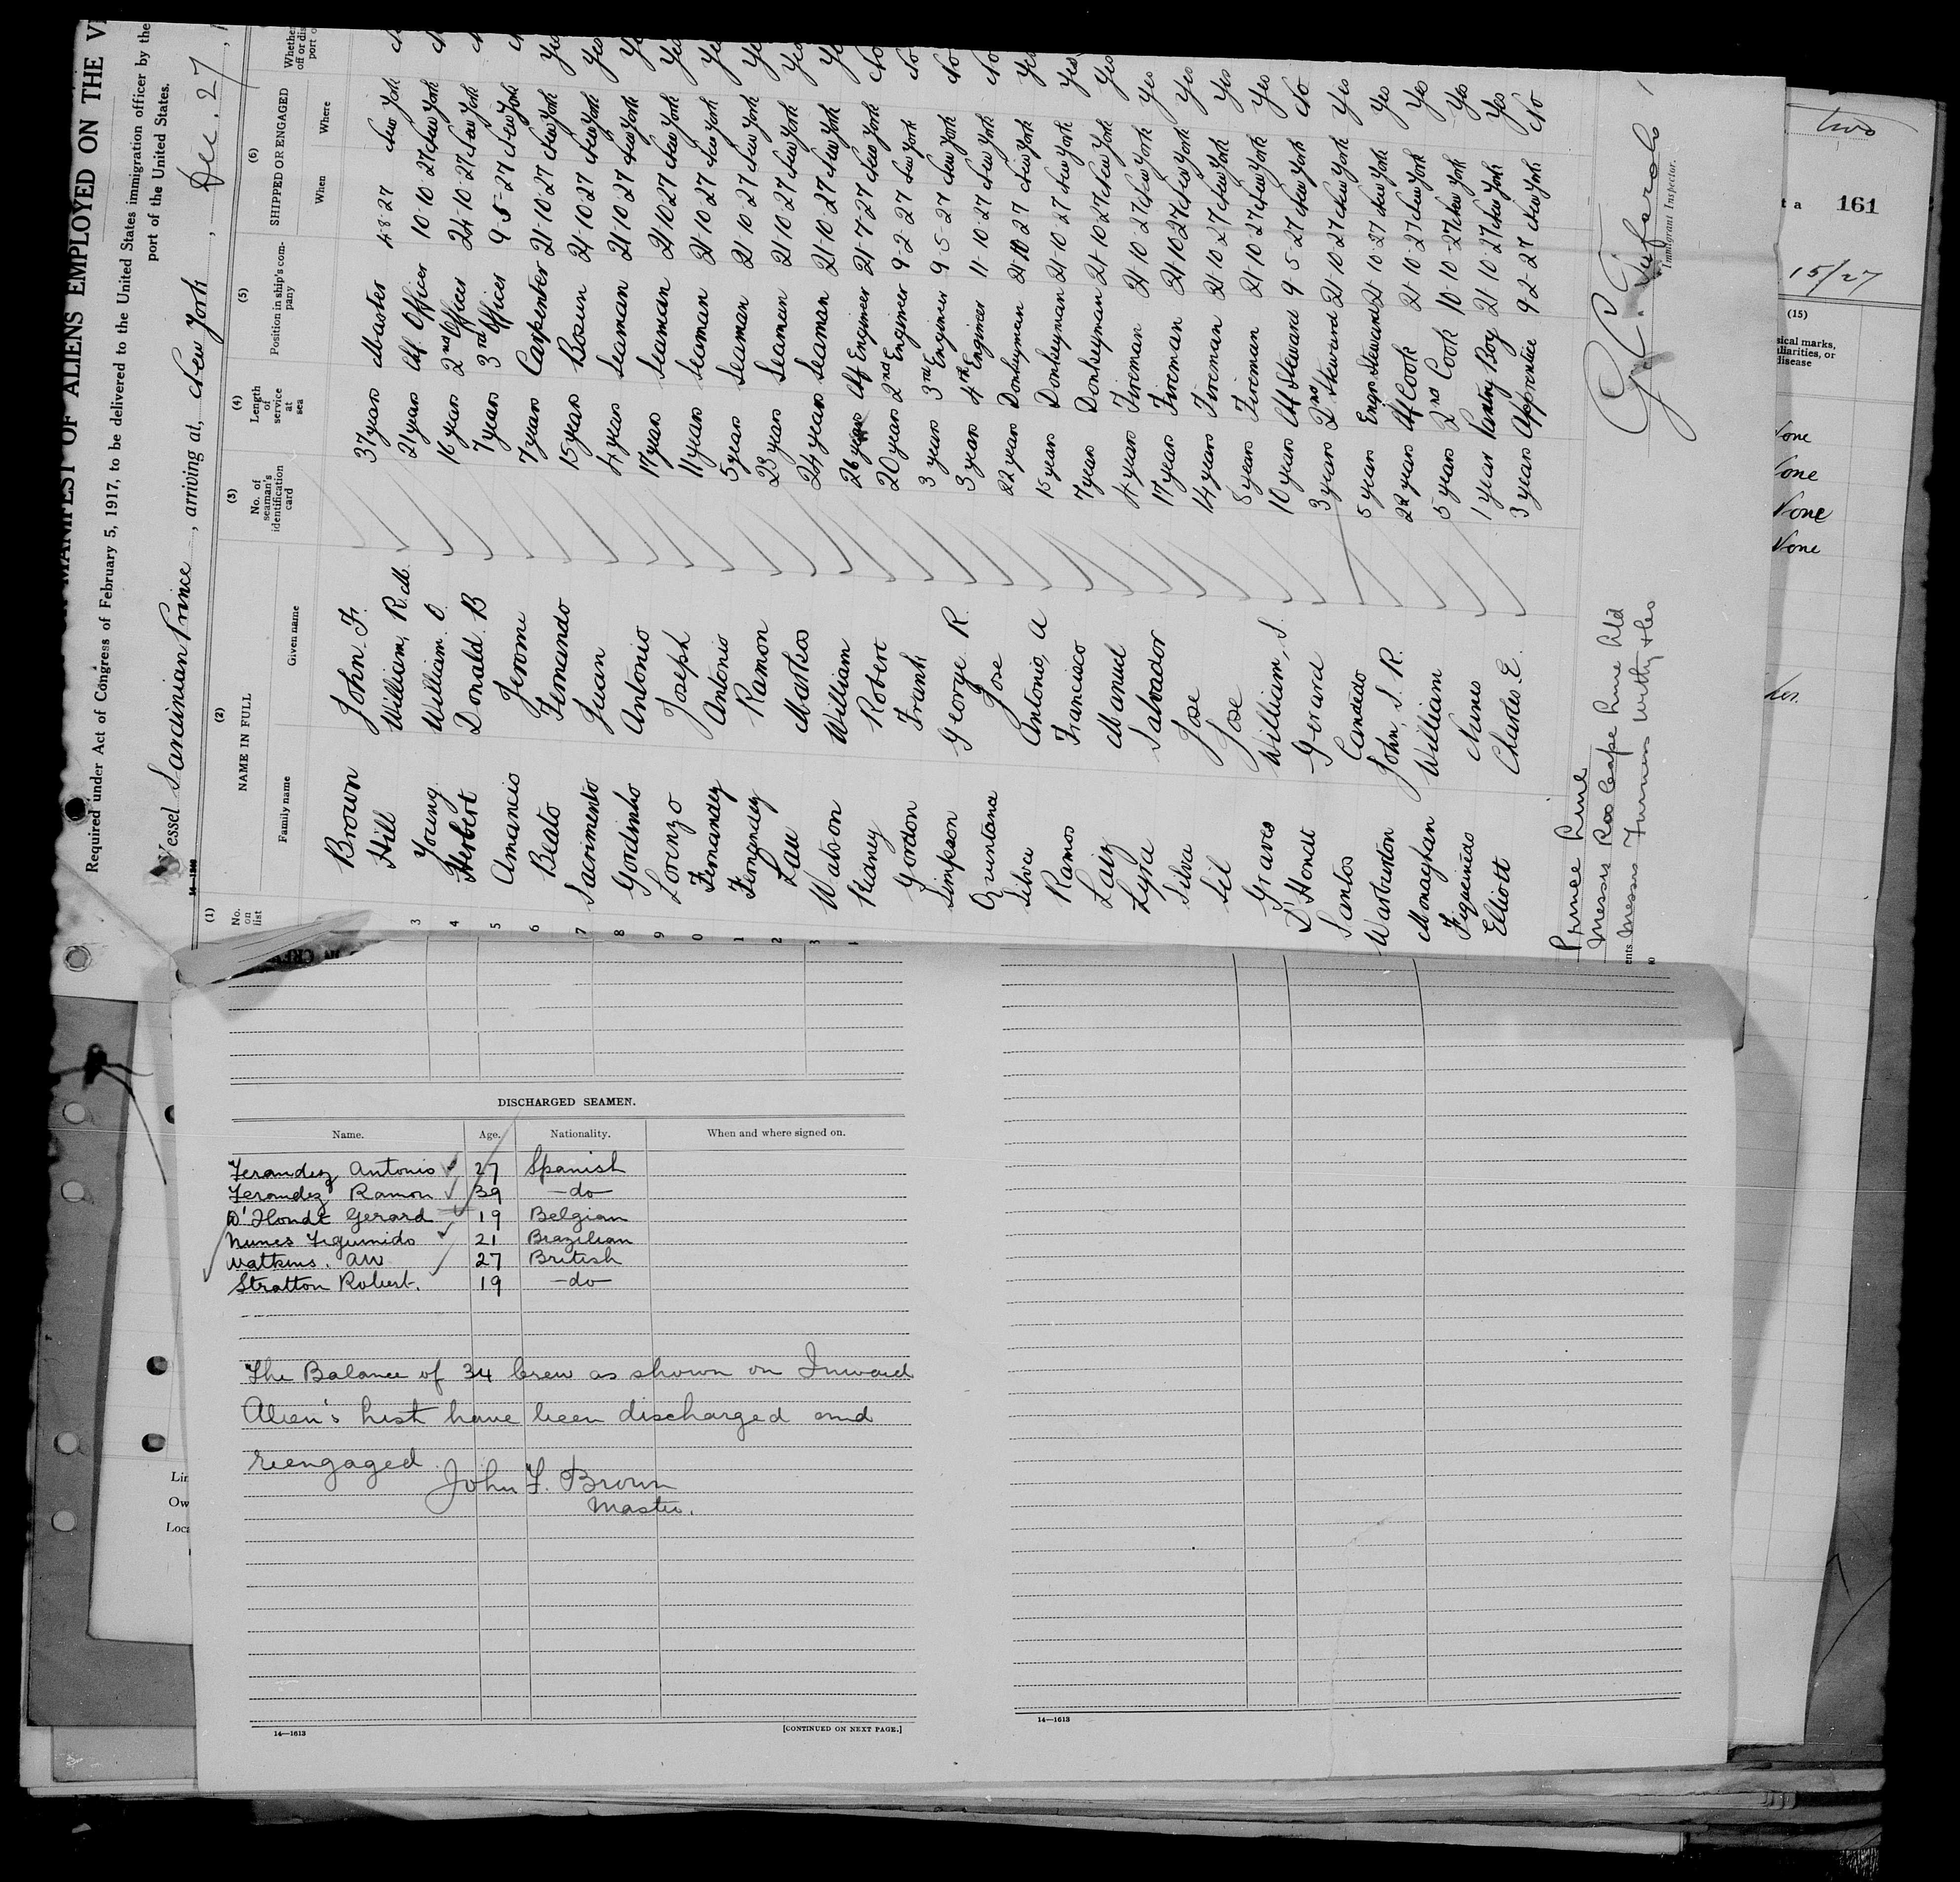 MANIFEST OF ALIENS EMPLOYED ON THE
Required under Act of Congress of February 5, 1917, to be delivered to the United States immigration officer by the
port of the United States.
Vessel Sardinian Prince, arriving at, New York, Dec. 27,
(1) (2) (3) (4) (5) (6)
No. on list NAME IN FULL No. of seaman's identification card Length of service at sea Position in ship's company SHIPPED OR ENGAGED
Family name Given name When Where
Brown John F. 37 years Master 4-8-27 New York
Hill William, R.M. 21 years Chf. Officer 10-10-27 New York
3 Young William. O. 16 years 2nd Officer 24-10-27 New York
4 Herbert Donald. B 7 years 3rd Officer 9-5-27 New York
5 Amancio Jerome 7 years Carpenter 21-10-27 New York Yes
6 Beato Fernando 15 years Bosun 21-10-27 New York Yes
7 Sacrimento Juan 4 years Seaman 21-10-27 New York Yes
8 Gordinho Antonio 17 years Seaman 21-10-27 New York Yes
9 Lorenzo Joseph 11 years Seaman 21-10-27 New York Yes
0 Fernandez Antonio 5 years Seaman 21-10-27 New York Yes
1 Fernandez Ramon 23 years Seaman 21-10-27 New York Yes
2 Lau Markos 24 years Seaman 21-10-27 New York Yes
3 Watson William 26 years Chf Engineer 21-7-27 New York No
Kidney Robert 20 years 2nd Engineer 9-2-27 New York No
Gordon Frank 3 years 3rd Engineer 9-5-27 New York No
Simpson George R. 3 years 4th Engineer 11-10-27 New York No
Quintana Jose 22 years Donkeyman 21-10-27 New York Yes
Silva Antonio, A 15 years Donkeyman 21-10-27 New York Yes
Ramos Francisco 7 years Donkeyman 21-10-27 New York Yes
Laiz Manuel 4 years Fireman 21-10-27 New York Yes
Lyra Salvador 17 years Fireman 21-10-27 New York Yes
Silva Jose 14 years Fireman 21-10-27 New York Yes
Sil Jose 8 years Fireman 21-10-27 New York Yes
Graves William, S. 10 years Chf Steward 9-5-27 New York No
D'Hondt Gerard 3 years 2nd Steward 21-10-27 New York Yes
Santos Candido 5 years Engrs Steward 21-10-27 New York Yes
Warburton John, S. R. 22 years Chf Cook 21-10-27 New York Yes
Monaghan William 5 years 2nd Cook 10-10-27 New York Yes
Figueirido Nunes 1 year Pantry Boy 21-10-27 New York Yes
Elliott Charles. E. 3 years Apprentice 9-2-27 New York No
Prince Line
Immigrant Inspector.
two
161
15/27
(15)
None
None
None
None
DISCHARGED SEAMEN.
Name. Age. Nationality. When and where signed on.
Ferandez Antonio 27 Spanish
Ferandez Ramon 39 -do-
D'Hondt Gerard 19 Belgian
Nunes Figumido 21 Brazilian
Watkins. AW 27 British
Stratton Robert. 19 -do-
The Balance of 34 Crew as shown on Inward
Alien's list have been discharged and
reengaged.
John F. Brown
Master.
14—1613 [CONTINUED ON NEXT PAGE.]
14—1613